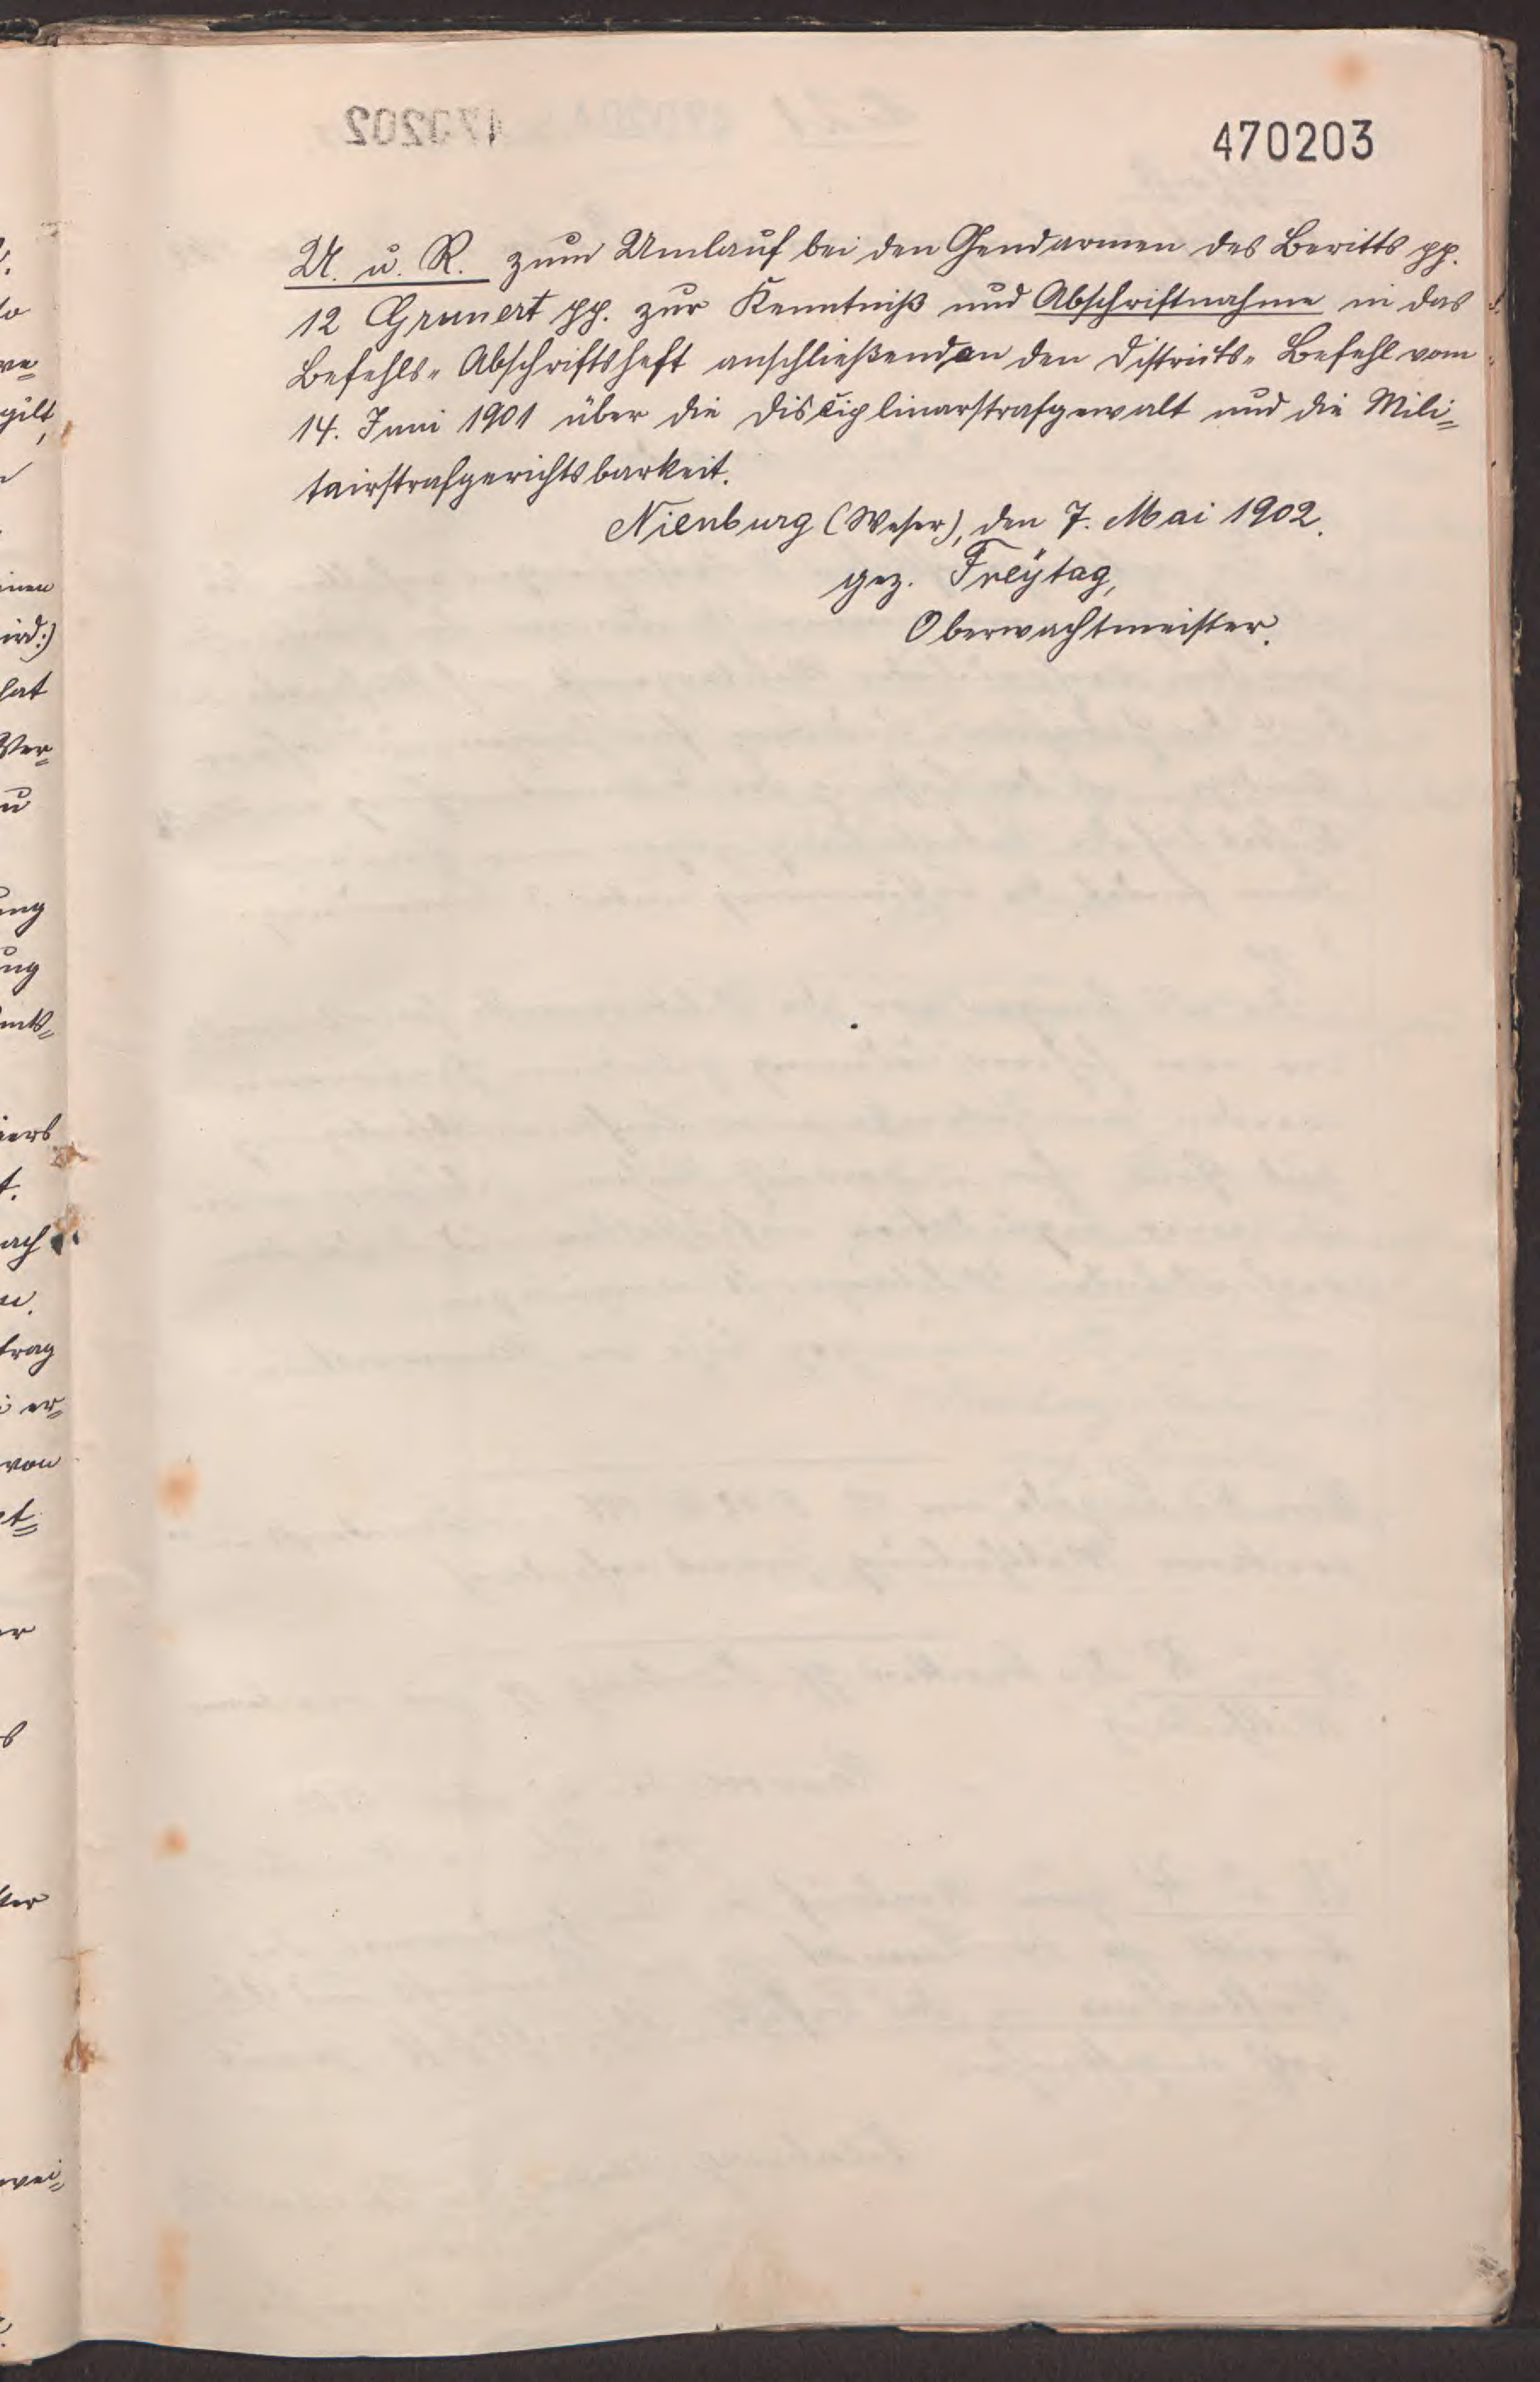 470203
U. u. R. zum Umlauf bei den Gendarmen des Beritts pp.
12 Grunert pp. zur Kenntniß und Abschriftnahme in das
Befehls- Abschriftsheft anschließend an den Districts- Befehl vom
14. Juni 1901 über die Disciplinarstrafgewalt und die Mili-
tairstrafgerichtsbarkeit.
Nienburg (Weser), den 7. Mai 1902.
gez. Freytag,
Oberwachtmeister.